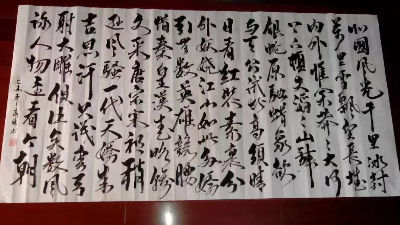 北國風光千里冰封
萬里雪飄望長城
内外惟余莽々大河
上下頓失滔々山舞
銀蛇原馳蜡象欲
与天公試比高須晴
日看紅裝素裹分
外妖嬈江山如此多嬌
引無數英雄競折腰
惜秦皇漢武略輸
文采唐宗宋祖稍
遜風騷一代天驕成
吉思汗只識弯弓
射大雕俱往矣數風
流人物還看今朝